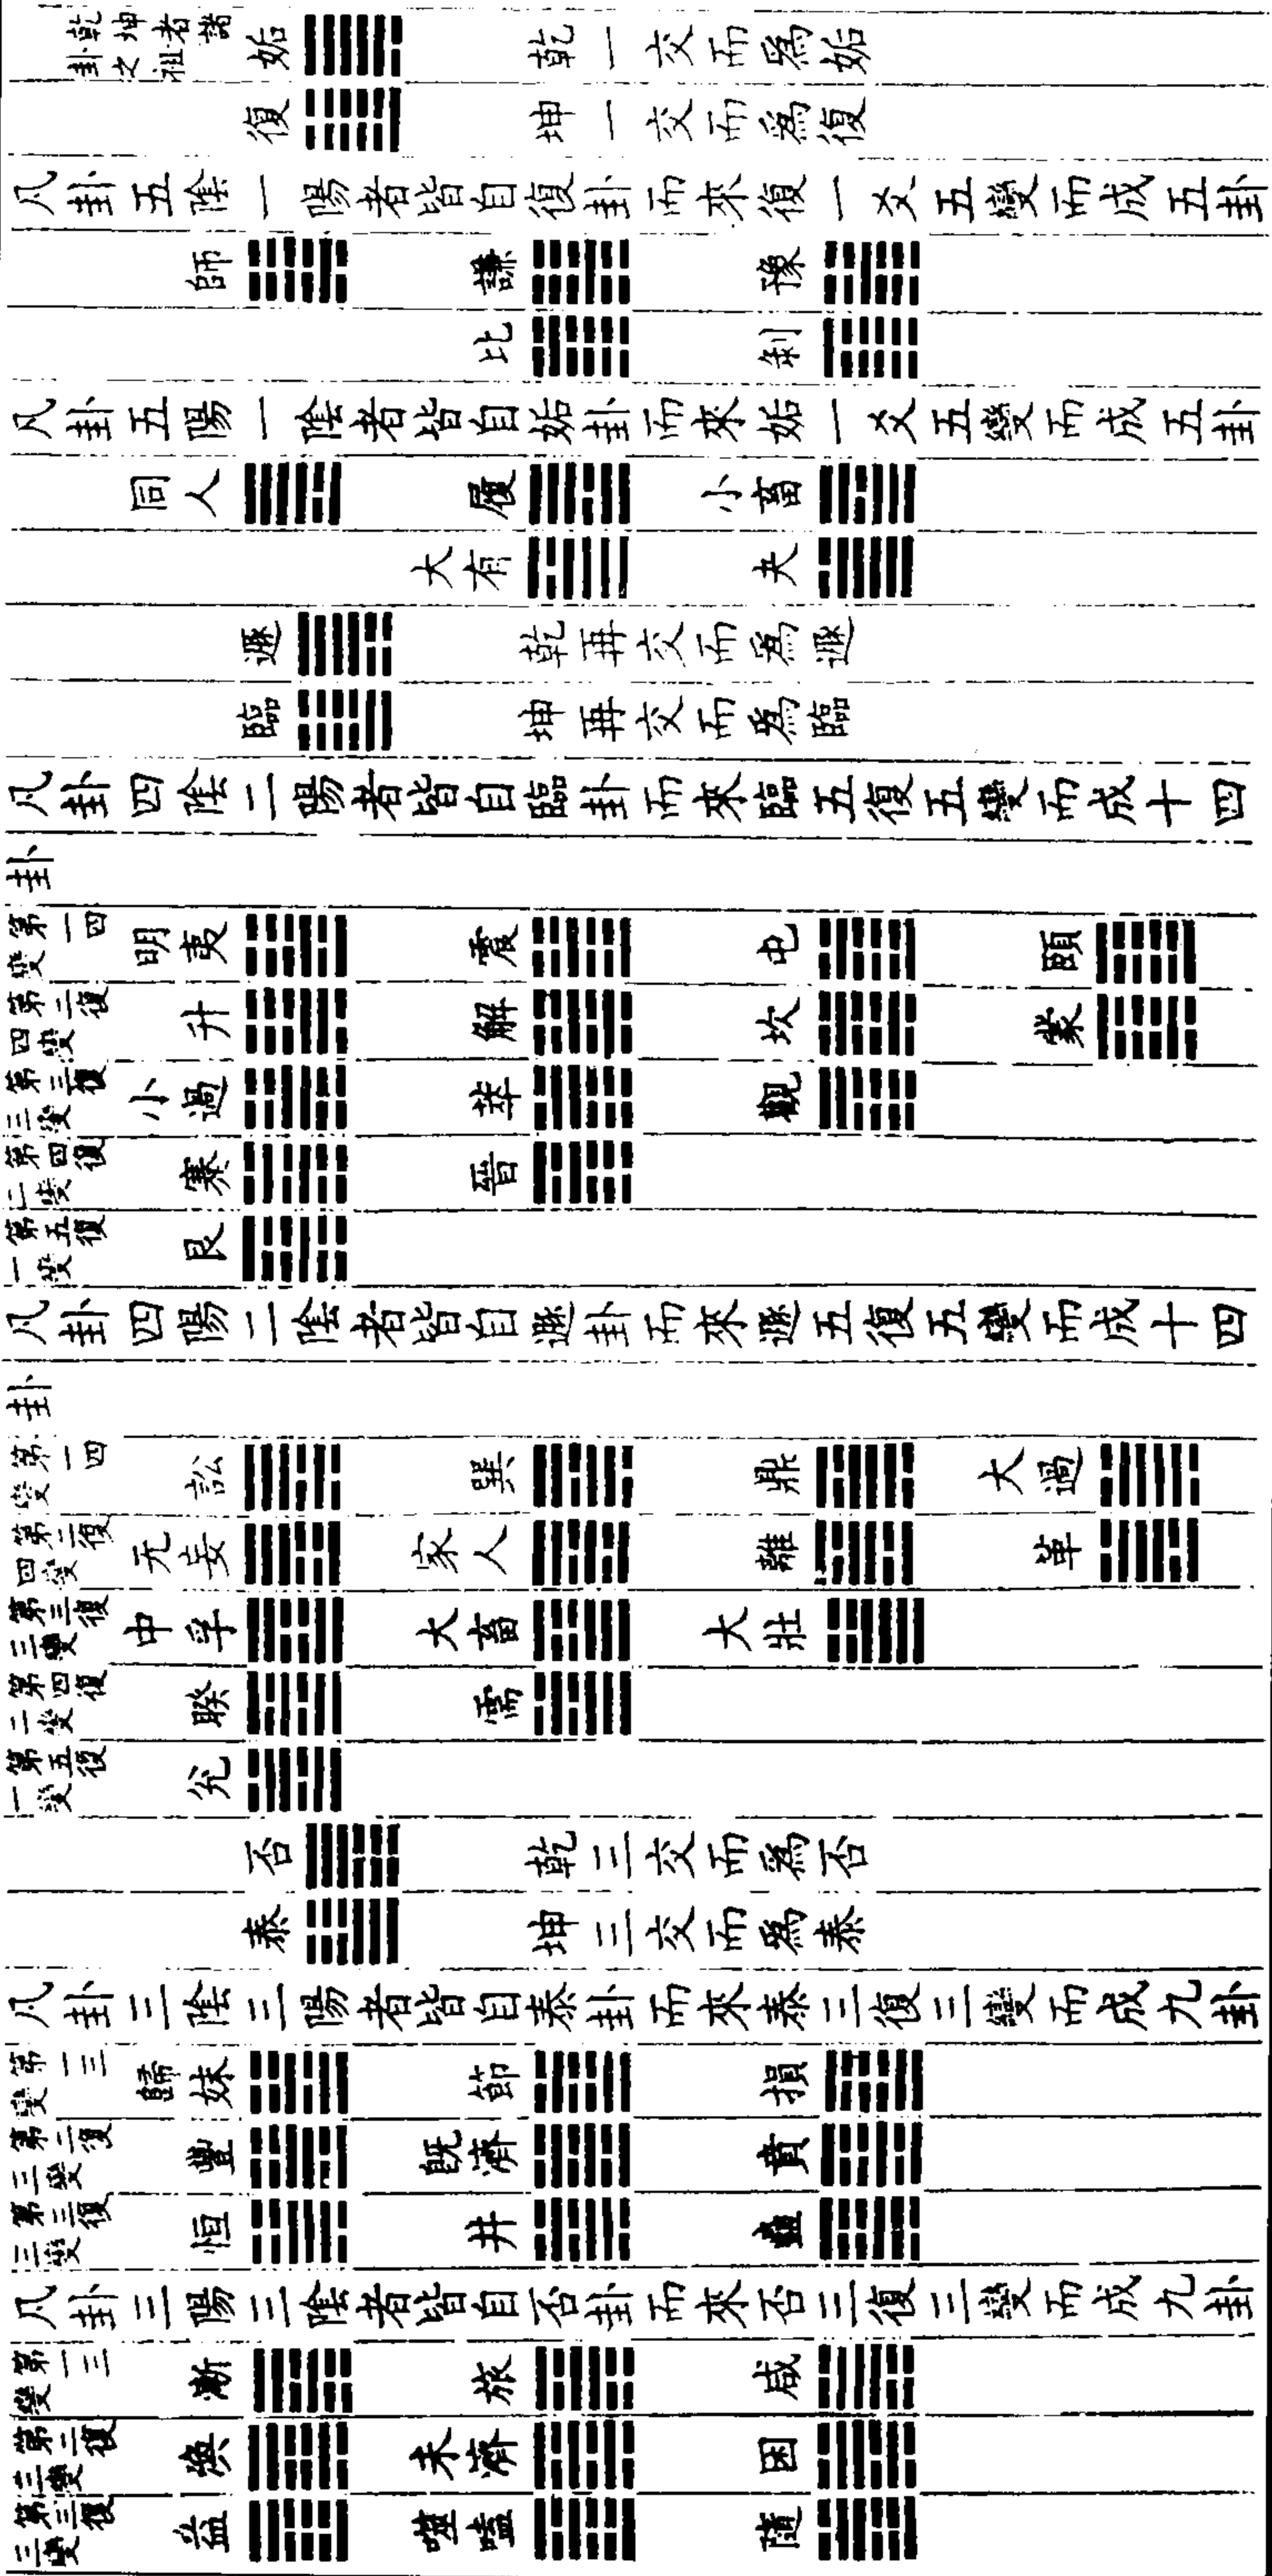 乾坤者諸卦之祖
姤 乾一交而為姤
復 坤一交而為復
凡卦五陰一陽者皆自復卦而來復一爻五變而成五卦
師 謙 豫
比 剝
凡卦五陽一陰者皆自姤卦而來姤一爻五變而成五卦
同人 履 小畜
大有 夬
遯 乾再交而為遯
臨 坤再交而為臨
凡卦四陰二陽者皆自臨卦而來臨五復五變而成十四
卦
第一四變 明夷 震 屯 頤
第二復四變 升 解 坎 蒙
第三復三變 小過 萃 觀
第四復二變 蹇 晉
第五復一變 艮
凡卦四陽二陰者皆自遯卦而來遯五復五變而成十四
卦
第一四變 訟 巽 鼎 大過
第二復四變 无妄 家人 離 革
第三復三變 中孚 大畜 大壯
第四復二變 睽 需
第五復一變 兌
否 乾三交而為否
泰 坤三交而為泰
凡卦三陰三陽者皆自泰卦而來泰三復三變而成九卦
第一三變 歸妹 節 損
第二復三變 豐 既濟 賁
第三復三變 恒 井 蠱
凡卦三陽三陰者皆自否卦而來否三復三變而成九卦
第一三變 漸 旅 咸
第二復三變 渙 未濟 困
第三復三變 益 噬嗑 隨